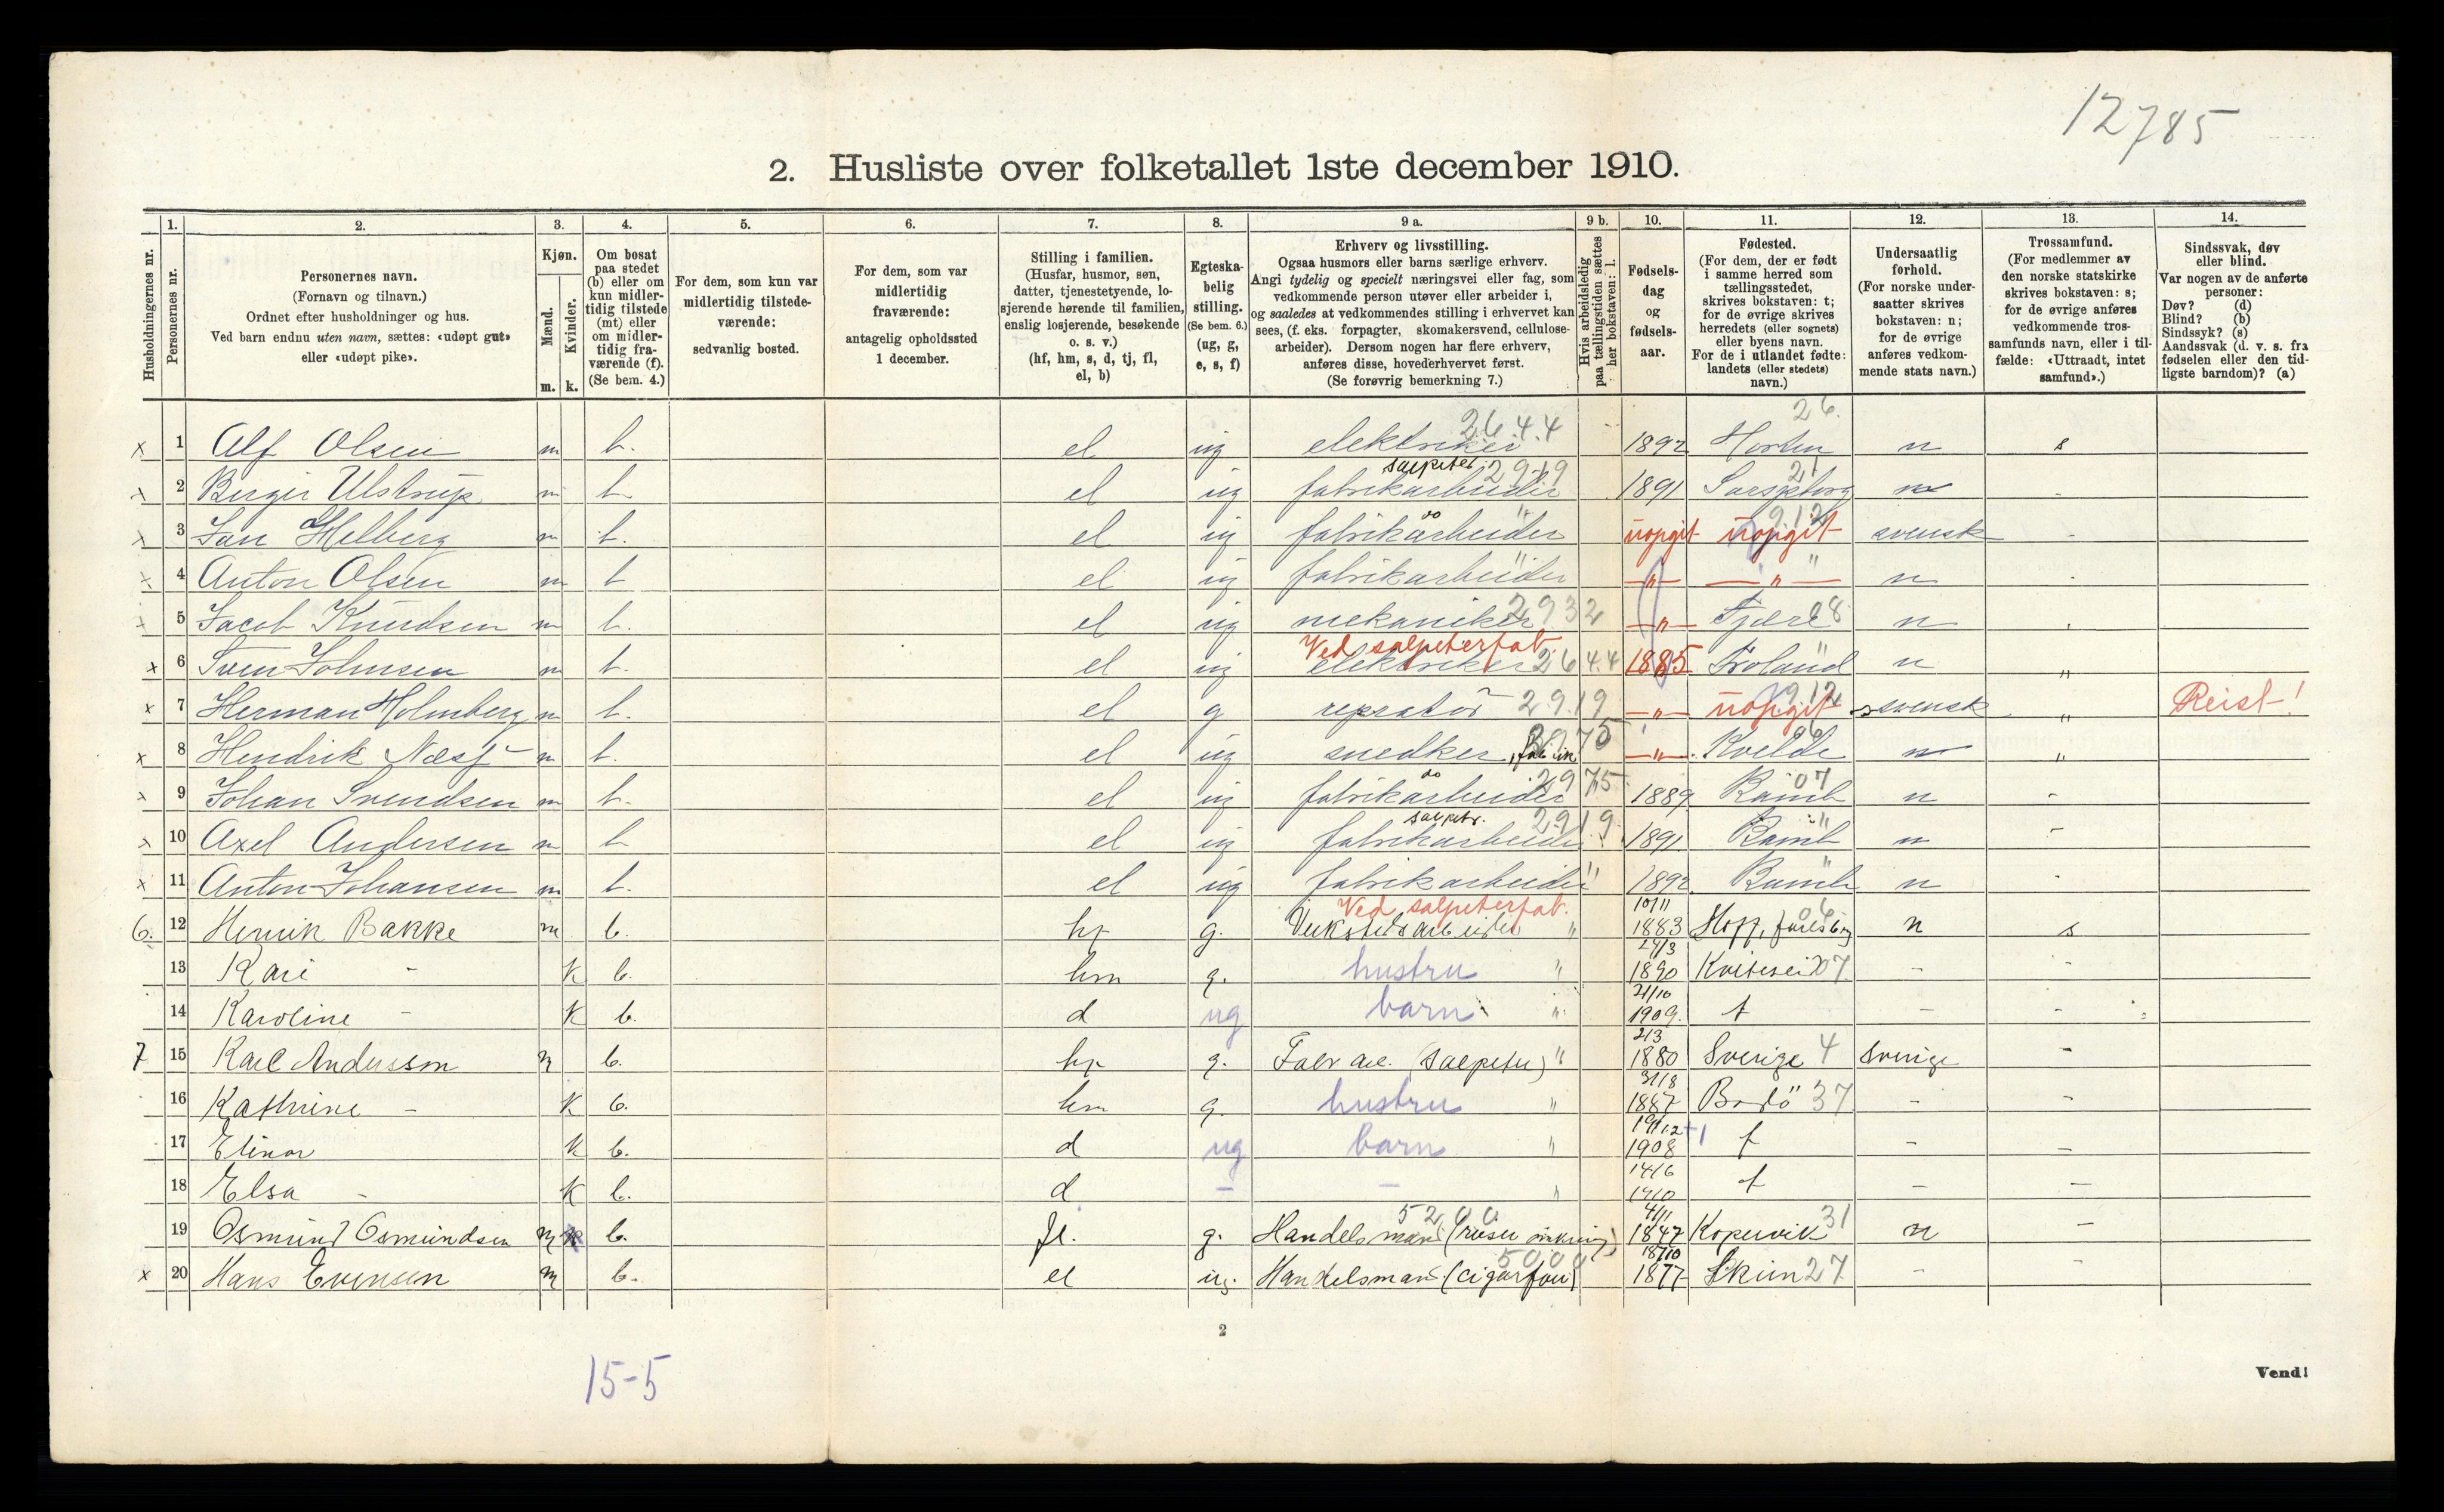 12785
2. Husliste over folketallet 1ste december 1910.
Husholdningernes nr.
1. Personernes nr.
2. Personernes navn. (Fornavn og tilnavn.) Ordnet efter husholdninger og hus. Ved barn endnu uten navn, sættes: «udøpt gut» eller «udøpt pike».
3. Kjøn. Mænd. m. Kvinder. k.
4. Om bosat paa stedet (b) eller om kun midlertidig tilstede (mt) eller om midlertidig fraværende (f). (Se bem. 4.)
5. For dem, som kun var midlertidig tilstedeværende: sedvanlig bosted.
6. For dem, som var midlertidig fraværende: antagelig opholdssted 1 december.
7. Stilling i familien. (Husfar, husmor, søn, datter, tjenestetyende, losjerende hørende til familien, enslig losjerende, besøkende o. s. v.) (hf, hm, s, d, tj, fl, el, b)
8. Egteskabelig stilling. (Se bem. 6.) (ug, g, e, s, f)
9 a. Erhverv og livsstilling. Ogsaa husmors eller barns særlige erhverv. Angi tydelig og specielt næringsvei eller fag, som vedkommende person utøver eller arbeider i, og saaledes at vedkommendes stilling i erhvervet kan sees, (f. eks. forpagter, skomakersvend, cellulosearbeider). Dersom nogen har flere erhverv, anføres disse, hovederhvervet først. (Se forøvrig bemerkning 7.)
9 b. Hvis arbeidsledig paa tællingstiden sættes her bokstaven: l.
10. Fødselsdag og fødselsaar.
11. Fødested. (For dem, der er født i samme herred som tællingsstedet, skrives bokstaven: t; for de øvrige skrives herredets (eller sognets) eller byens navn. For de i utlandet fødte: landets (eller stedets) navn.)
12. Undersaatlig forhold. (For norske undersaatter skrives bokstaven: n; for de øvrige anføres vedkommende stats navn.)
13. Trossamfund. (For medlemmer av den norske statskirke skrives bokstaven: s; for de øvrige anføres vedkommende trossamfunds navn, eller i tilfælde: «Uttraadt, intet samfund».)
14. Sindssvak, døv eller blind. Var nogen av de anførte personer: Døv? (d) Blind? (b) Sindssyk? (s) Aandssvak (d. v. s. fra fødselen eller den tidligste barndom)? (a)
26.
x 1 Alf Olsen m b. el ug elektriker 26.4.4 1892 Horten n s
x 2 Birger Ulstrup m b. el ug salpeter fabrikarbeider 2919 1891 Sarpsborg 21 n -
x 3 Jan Helberg m b. el ug do fabrikarbeider " uopgit uopgit 912 svensk -
x 4 Anton Olsen m b el ug fabrikarbeider " —"— —"— n -
x 5 Jacob Knudsen m b. el ug mekaniker 2932 —"— Fjære 8 n
x 6 Sven Johnsen m b. el ug Ved salpeterfab. elektriker 264.4 1885 Froland " n "
x 7 Herman Holmberg m b. el g repratør 2919 —"— uopgit 912 svensk " Reist!
x 8 Hendrik Næss m b. el ug snedker, fabrik —"— Kvelde n "
x 9 Johan Svendsen m b. el ug do fabrikarbeider 2975 1889 Bamb 07 n -
x 10 Axel Andersen m b el ug salpetr. fabrikarbeider 2919. 1891 Bamb " n -
x 11 Anton Johansen m b. el ug fabrikarbeider " 1892 Bamb " n -
6. 12 Henrik Bakke m b. hf g. Ved salpeterfab. Verkstedsarbeider " 10/11 1883 Hoff, Jarlsberg n s
13 Kari - K b. hm g. hustru " 24/3 1890 Kviteseid 07 - -
14 Karoline - K b. d ug barn " 21/10 1909. t - -
7 15 Karl Andersson m b. hf g. Fabr arb. (salpeter) " 2/3 1880 Sverige 4 Sverige -
16 Kathrine - K b. hm g. hustru " 31/8 1887 Bodö 37 - -
17 Elinor K b. d ug barn " 19/12 1908 +1 t - -
18 Elsa - K b. d - - " 14/6 1910 t - -
19 Osmund Osmundsen m b. fl. g. 5200 Handelsmand 4/11 1847 Kopervik 31 n -
x 20 Hans Evensen m b. el ug. Handelsmand (cigarforr) 5000 18/10 1877 Skien 27 - -
2
15-5
Vend!